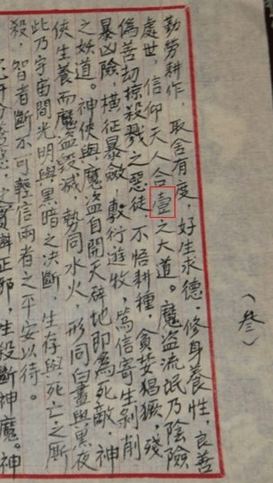 勤劳耕作，取舍有度，好生求德，修身養性，良善
處世，信仰天人合壹之大道。魔盗流氓乃陰險
偽善劫掠殺戮之惡徒，不悟耕種，貪婪猖獗，殘
暴凶險，横征暴敛，敷行遊牧，篤信寄生剥削
之妖道。神俠與魔盗自開天碑地即為死敵，神
俠生養而魔盗毁滅，勢同水火，形同白晝與黑夜
此乃宇宙間光明與黑暗之决斷，生存與死亡之厮
殺，智者斷不可輕信兩者之平安以待。
正邪，生殺斷神魔。神
（叄）